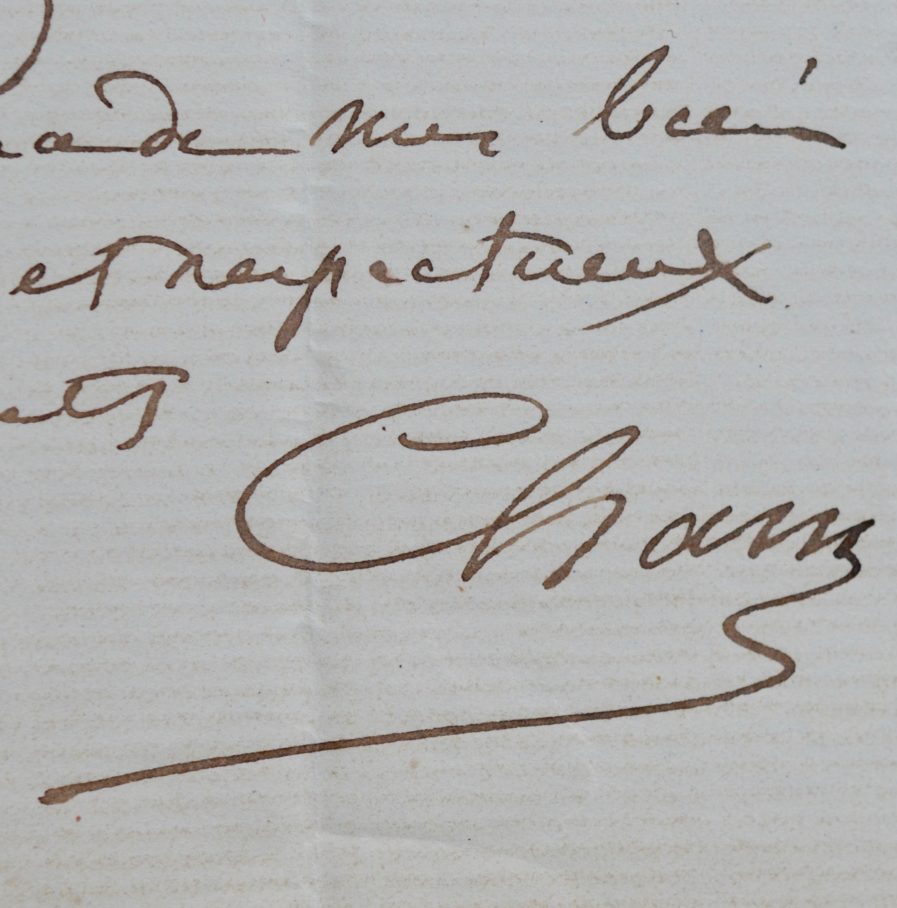 mes bien
et respectueux
Cham